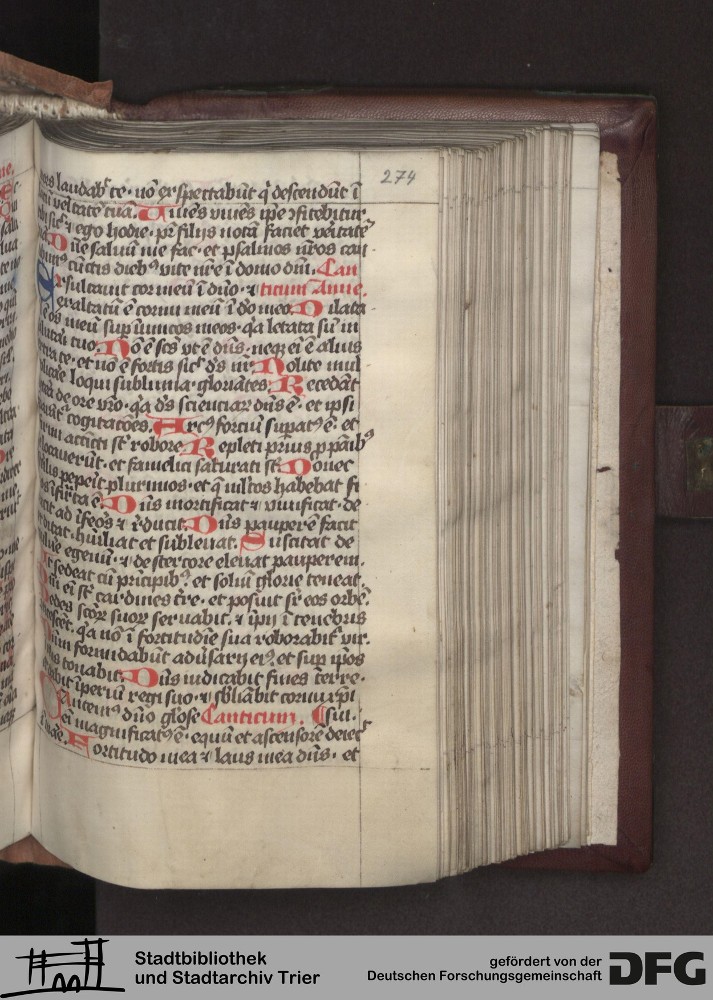 274
laudabt te · nō exspectabūt q̄ descendūt ī
veītatē tuā. Uiuēs viuēs ip̄e ꝯfitebitur
sic̄ ⁊ ego hodie · pr̄ filijs notā faciet veritatē
Dn̄e saluū me fac · et psalmos nr̄os can
cūctis dieb⁹ vite nr̄e ī domo dn̄i. Can
Exsultauit cor meū ī dn̄o · ⁊ ticum Anne.
exaltatū ē cornu meū ī do meo. Dilata
os meū sup inimicos meos · q̄a letata sū in
tuo. Nō ē sc̄s vt ē dn̄s · neq; ei ē alius
te · et nō ē fortis sic̄ ds̄ nr̄. Nolite mul
loqui sublimia · gloriātes. Recedāt
de ore vr̄o · q̄a ds̄ scienciarū dn̄s ē · et ipsi
cogitacōes. Arc⁹ forciū supat⁹ ē · et
accīcti st̄ robore. Repleti prius p panib⁹
locauerūt · et famelici saturati st̄. Donec
peperit plurimos · et q̄ ml̄tos habebat fi
īfirīta ē. Dn̄s mortificat ⁊ viuificat · de
ad īfeos ⁊ rducit. Dn̄s pauperē facit
ditat · hūiliat et subleuat. Suscitat de
egenū · ⁊ de stercore eleuat pauperem.
Ut sedeat cū prīcipib⁹ · et soliū glorie teneat.
ei st̄ cardines tr̄e · et posuit sr̄ eos orbē.
Pedes sc̄oꝝ suoꝝ seruabit · ⁊ īpij ī tenebris
q̄a nō ī fortitudīe sua roborabit᷑ vir.
formidabūt adūsarij ei⁹ · et sup ip̄os
tonabit. Dn̄s iudicabit fines terre ·
dabit īperiū regi suo · ⁊ sbliābit cornu xp̄i
Cātem⁹ dn̄o gl̄ose Canticum. sui.
ei magnificat⁹ ē · equū et ascensorē deiec̄
Fortitudo mea ⁊ laus mea dn̄s · et
Stadtbibliothek
und Stadtarchiv Trier
gefördert von der
Deutschen Forschungsgemeinschaft
DFG